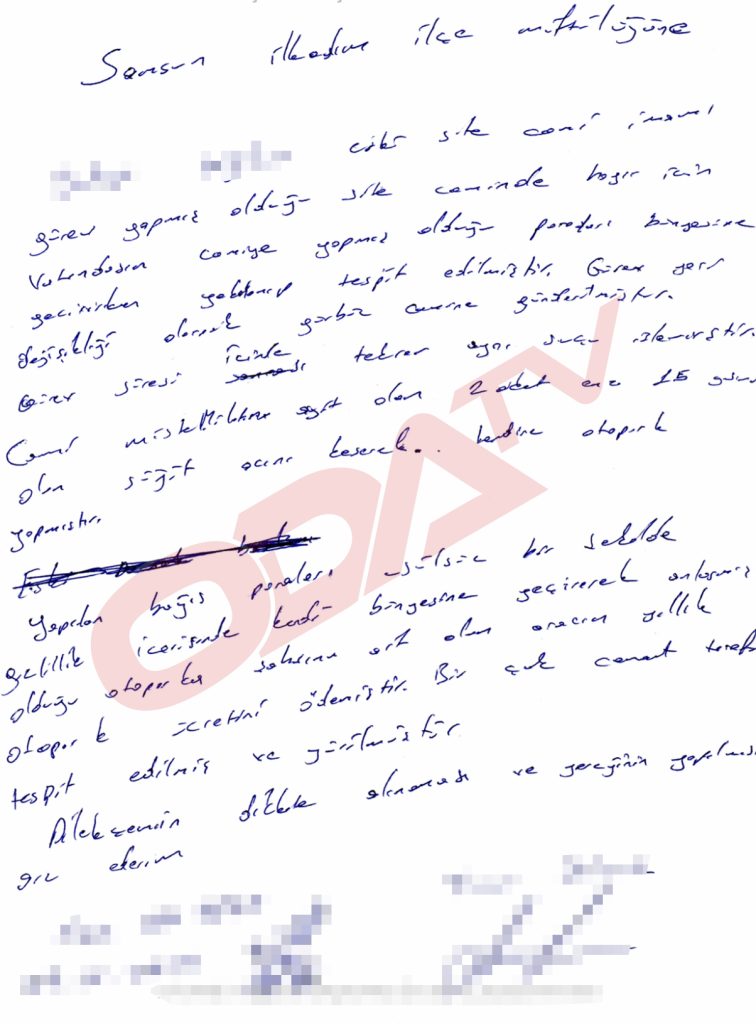 Samsun ilkadım ilçe müftülüğüne
eski site cami imamı
görev yapmış olduğu site caminde hayır için
Vatandaşın camiye yapmış olduğu paraları bünyesine
geçirirken yakalanıp tespit edilmiştir. Görev yeri
değişikliği olarak gürbüz camine gönderilmiştir.
Görev süresi içinde tekrar aynı suçu işlemiştir.
Cami müstemilatına ait olan 2 adet 15
olan söğüt acını keserek.. kendine otopark
yapmıştır.
Yapılan bağış paraları usülsüz bir şekilde
gizlilik içerisinde kendi bünyesine geçirerek anlaşmış
olduğu otopark sahsına ait olan aracın yıllık
otopark ücretini ödemiştir. Bir çok cemaat
tespit edilmiş ve görülmüştür
Dilekçemin dikkate alınması ve gereğinin
arz ederim
ODATV